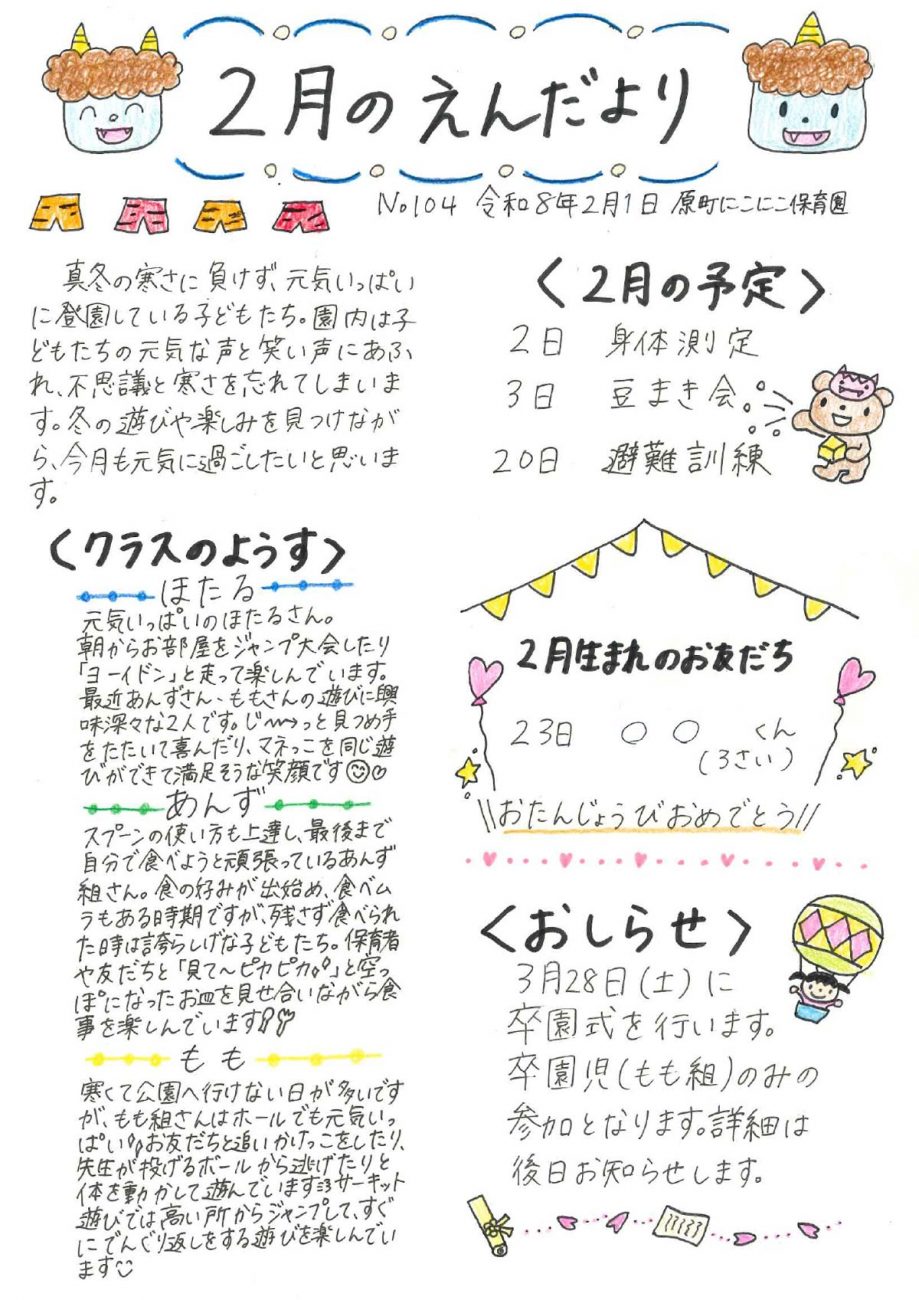 2月のえんだより
No104 令和8年2月1日 原町にこにこ保育園
真冬の寒さに負けず、元気いっぱい
に登園している子どもたち。園内は子
どもたちの元気な声と笑い声にあふ
れ、不思議と寒さを忘れてしまいま
す。冬の遊びや楽しみを見つけなが
ら、今月も元気に過ごしたいと思いま
す。
〈2月の予定〉
2日 身体測定
3日 豆まき会
20日 避難訓練
〈クラスのようす〉
ほたる
元気いっぱいのほたるさん。
朝からお部屋をジャンプ大会したり
「ヨーイドン」と走って楽しんでいます。
最近あんずさん、ももさんの遊びに興
味深々な2人です。じ〜〜っと見つめ手
をたたいて喜んだり、マネっこを同じ遊
びができて満足そうな笑顔です
あんず
スプーンの使い方も上達し、最後まで
自分で食べようと頑張っているあんず
組さん。食の好みが出始め、食べム
ラもある時期ですが、残さず食べられ
た時は誇らしげな子どもたち。保育者
や友だちと「見て〜ピカピカ」と空っ
ぽになったお皿を見せ合いながら食
事を楽しんでいます
もも
寒くて公園へ行けない日が多いです
が、もも組さんはホールでも元気いっ
ぱい お友だちと追いかけっこをしたり、
先生が投げるボールから逃げたりと
体を動かして遊んでいます サーキット
遊びでは高い所からジャンプして、すぐ
にでんぐり返しをする遊びを楽しんでい
ます
2月生まれのお友だち
23日 ○ ○ くん
(3さい)
\\おたんじょうびおめでとう//
〈おしらせ〉
3月28日(土)に
卒園式を行います。
卒園児(もも組)のみの
参加となります。詳細は
後日お知らせします。